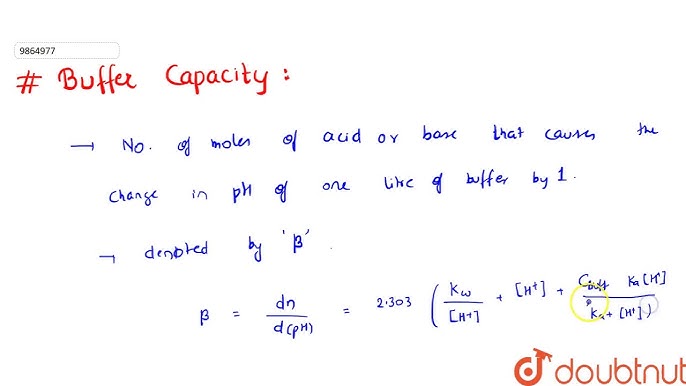 9864977
# Buffer Capacity :
→ No. of moles of acid or base that causes the
change in pH of one litre of buffer by 1.
→ denoted by 'β'.
β = dn/d(pH) = 2.303 ( Kw/[H+] + [H+] + Cbuff Ka[H+]/(Ka + [H+]) )
doubtnut